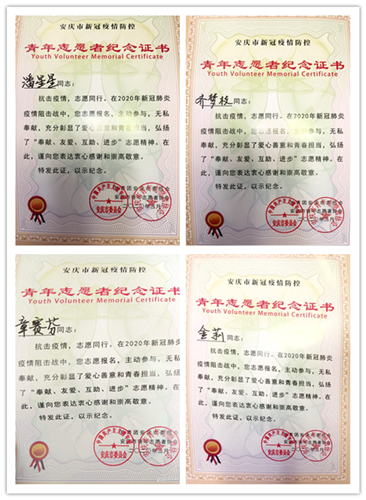 安庆市新冠疫情防控
青年志愿者纪念证书
Youth Volunteer Memorial Certificate
潘星星同志:
抗击疫情,志愿同行。在2020年新冠肺炎
疫情阻击战中,您志愿报名,主动参与,无私
奉献,充分彰显了爱心善意和青春担当,弘扬
了“奉献、友爱、互助、进步”志愿精神。在
此,谨向您表达衷心感谢和崇高敬意。
特发此证,以示纪念。
安庆市委员会
二〇二〇年三月
安庆市新冠疫情防控
青年志愿者纪念证书
Youth Volunteer Memorial Certificate
齐梦枝同志:
抗击疫情,志愿同行。在2020年新冠肺炎
疫情阻击战中,您志愿报名,主动参与,无私
奉献,充分彰显了爱心善意和青春担当,弘扬
了“奉献、友爱、互助、进步”志愿精神。在
此,谨向您表达衷心感谢和崇高敬意。
特发此证,以示纪念。
安庆市委员会
安庆市新冠疫情防控
青年志愿者纪念证书
Youth Volunteer Memorial Certificate
章赛芬同志:
抗击疫情,志愿同行。在2020年新冠肺炎
疫情阻击战中,您志愿报名,主动参与,无私
奉献,充分彰显了爱心善意和青春担当,弘扬
了“奉献、友爱、互助、进步”志愿精神。在
此,谨向您表达衷心感谢和崇高敬意。
特发此证,以示纪念。
安庆市委员会
安庆市新冠疫情防控
青年志愿者纪念证书
Youth Volunteer Memorial Certificate
金莉同志:
抗击疫情,志愿同行。在2020年新冠肺炎
疫情阻击战中,您志愿报名,主动参与,无私
奉献,充分彰显了爱心善意和青春担当,弘扬
了“奉献、友爱、互助、进步”志愿精神。在
此,谨向您表达衷心感谢和崇高敬意。
特发此证,以示纪念。
安庆市委员会